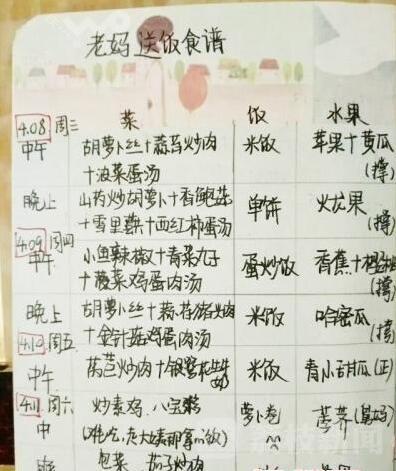 老妈送饭食谱
菜 饭 水果
4.08 周三
中午 胡萝卜丝+蒜苔炒肉 米饭 苹果+黄瓜
+波菜蛋汤 (撑)
晚上 山药炒胡萝卜+香鲍菇 单饼 火龙果
+雪里蕻+西红柿蛋汤 (撑)
4.09 周四
中午 小鱼辣椒+青菜丸子 蛋炒饭 香蕉+
+菠菜鸡蛋肉汤 (撑)
晚上 胡萝卜丝+蒜苔猪肉 米饭 哈密瓜
+金针菇鸡蛋肉汤 (撑)
4.10 周五
中午 莴苣炒肉+银鱼 米饭 青小甜瓜 (正)
4.11 周六
中 炒素鸡.八宝粥 萝卜卷 荸荠
包菜 茄子炒肉